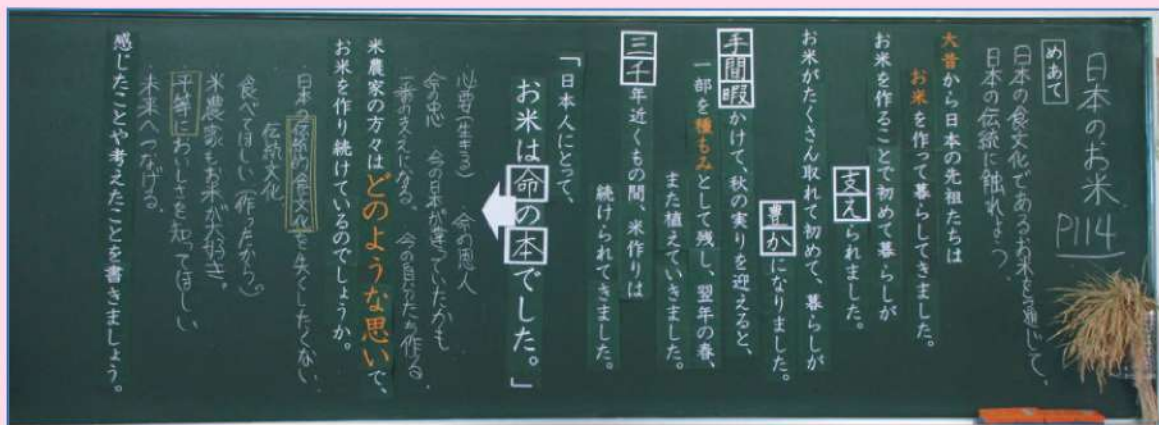 日本のお米
P114
めあて
日本の食文化であるお米を通じて、
日本の伝統に触れよう。
大昔から日本の先祖たちは
お米を作って暮らしてきました。
お米を作ることで初めて暮らしが
支えられました。
お米がたくさん取れて初めて、暮らしが
豊かになりました。
手間暇かけて、秋の実りを迎えると、
一部を種もみとして残し、翌年の春、
また植えていきました。
三千年近くもの間、米作りは
続けられてきました。
「日本人にとって、
お米は命の本でした。」
心要(生きる) 命の恩人
今の日本が違っていたかも
一番の支えになる。 今の自分たちを作る。
米農家の方々はどのような思いで、
お米を作り続けているのでしょうか。
日本の伝統的食文化を失くしたくない
伝統文化
食べてほしい(作ったから)
米農家もお米が大好き。
平等においしさを知ってほしい
未来へつなげる。
感じたことや考えたことを書きましょう。